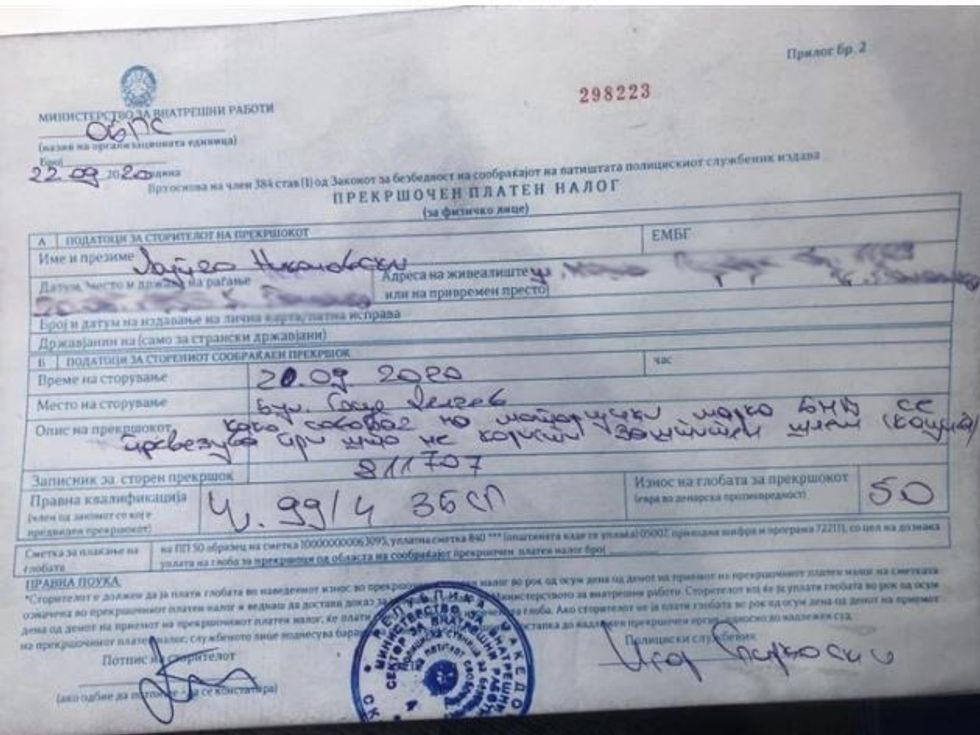 Прилог бр. 2
298223
МИНИСТЕРСТВО ЗА ВНАТРЕШНИ РАБОТИ
ОБПС
(назив на организационата единица)
Број
22 09 2020 година
Врз основа на член 384 став (1) од Законот за безбедност на сообраќајот на патиштата полицискиот службеник издава
ПРЕКРШОЧЕН ПЛАТЕН НАЛОГ
(за физичко лице)
А ПОДАТОЦИ ЗА СТОРИТЕЛОТ НА ПРЕКРШОКОТ
ЕМБГ
Име и презиме Николовски
Датум, место и држава на раѓање
Адреса на живеалиште ул.
или на привремен престој
Број и датум на издавање на лична карта/патна исправа
Државјанин на (само за странски државјани)
Б ПОДАТОЦИ ЗА СТОРЕНИОТ СООБРАЌАЕН ПРЕКРШОК
Време на сторување 20.09 2020 час
Место на сторување Бул. Гоце Делчев
Опис на прекршокот како на моторцикл марка се
превезува при што не користи заштитен шлем (кацига)
Записник за сторен прекршок 811707
Правна квалификација
(член од законот со кој е
предвиден прекршокот)
Чл. 99/4 ЗБСП
Износ на глобата за прекршокот
(евра во денарска противвредност)
50
Сметка за плаќање на
глобата
на ПП 50 образец на сметка 100000000063095, уплатна сметка 840 *** (општината каде се уплаќа) 05002, приходна шифра и програма 722111, со цел на дознака
уплата на глоба за прекршоци од областа на сообраќајот прекршочен платен налог број
ПРАВНА ПОУКА
*Сторителот е должен да ја плати глобата во наведениот износ во прекршочниот платен налог во рок од осум дена од денот на приемот на прекршочниот платен налог на сметката
означена во прекршочниот платен налог и веднаш да достави доказ за Министерството за внатрешни работи. Сторителот кој ќе ја уплати глобата во рок од осум
дена од денот на приемот на прекршочниот платен налог, ќе плати глоба. Ако сторителот не ја плати глобата во рок од осум дена од денот на приемот
на прекршочниот платен налог, службеното лице поднесува барање до надлежен прекршочен орган, односно до надлежен суд.
Потпис на сторителот
(ако одбие да потпише - да се констатира)
РЕПУБЛИКА МАКЕДО
МИНИСТЕРСТВО ЗА ВНАТРЕШНИ
СЕКТОР ЗА ВНАТРЕШНИ РАБОТ
Полициски службеник